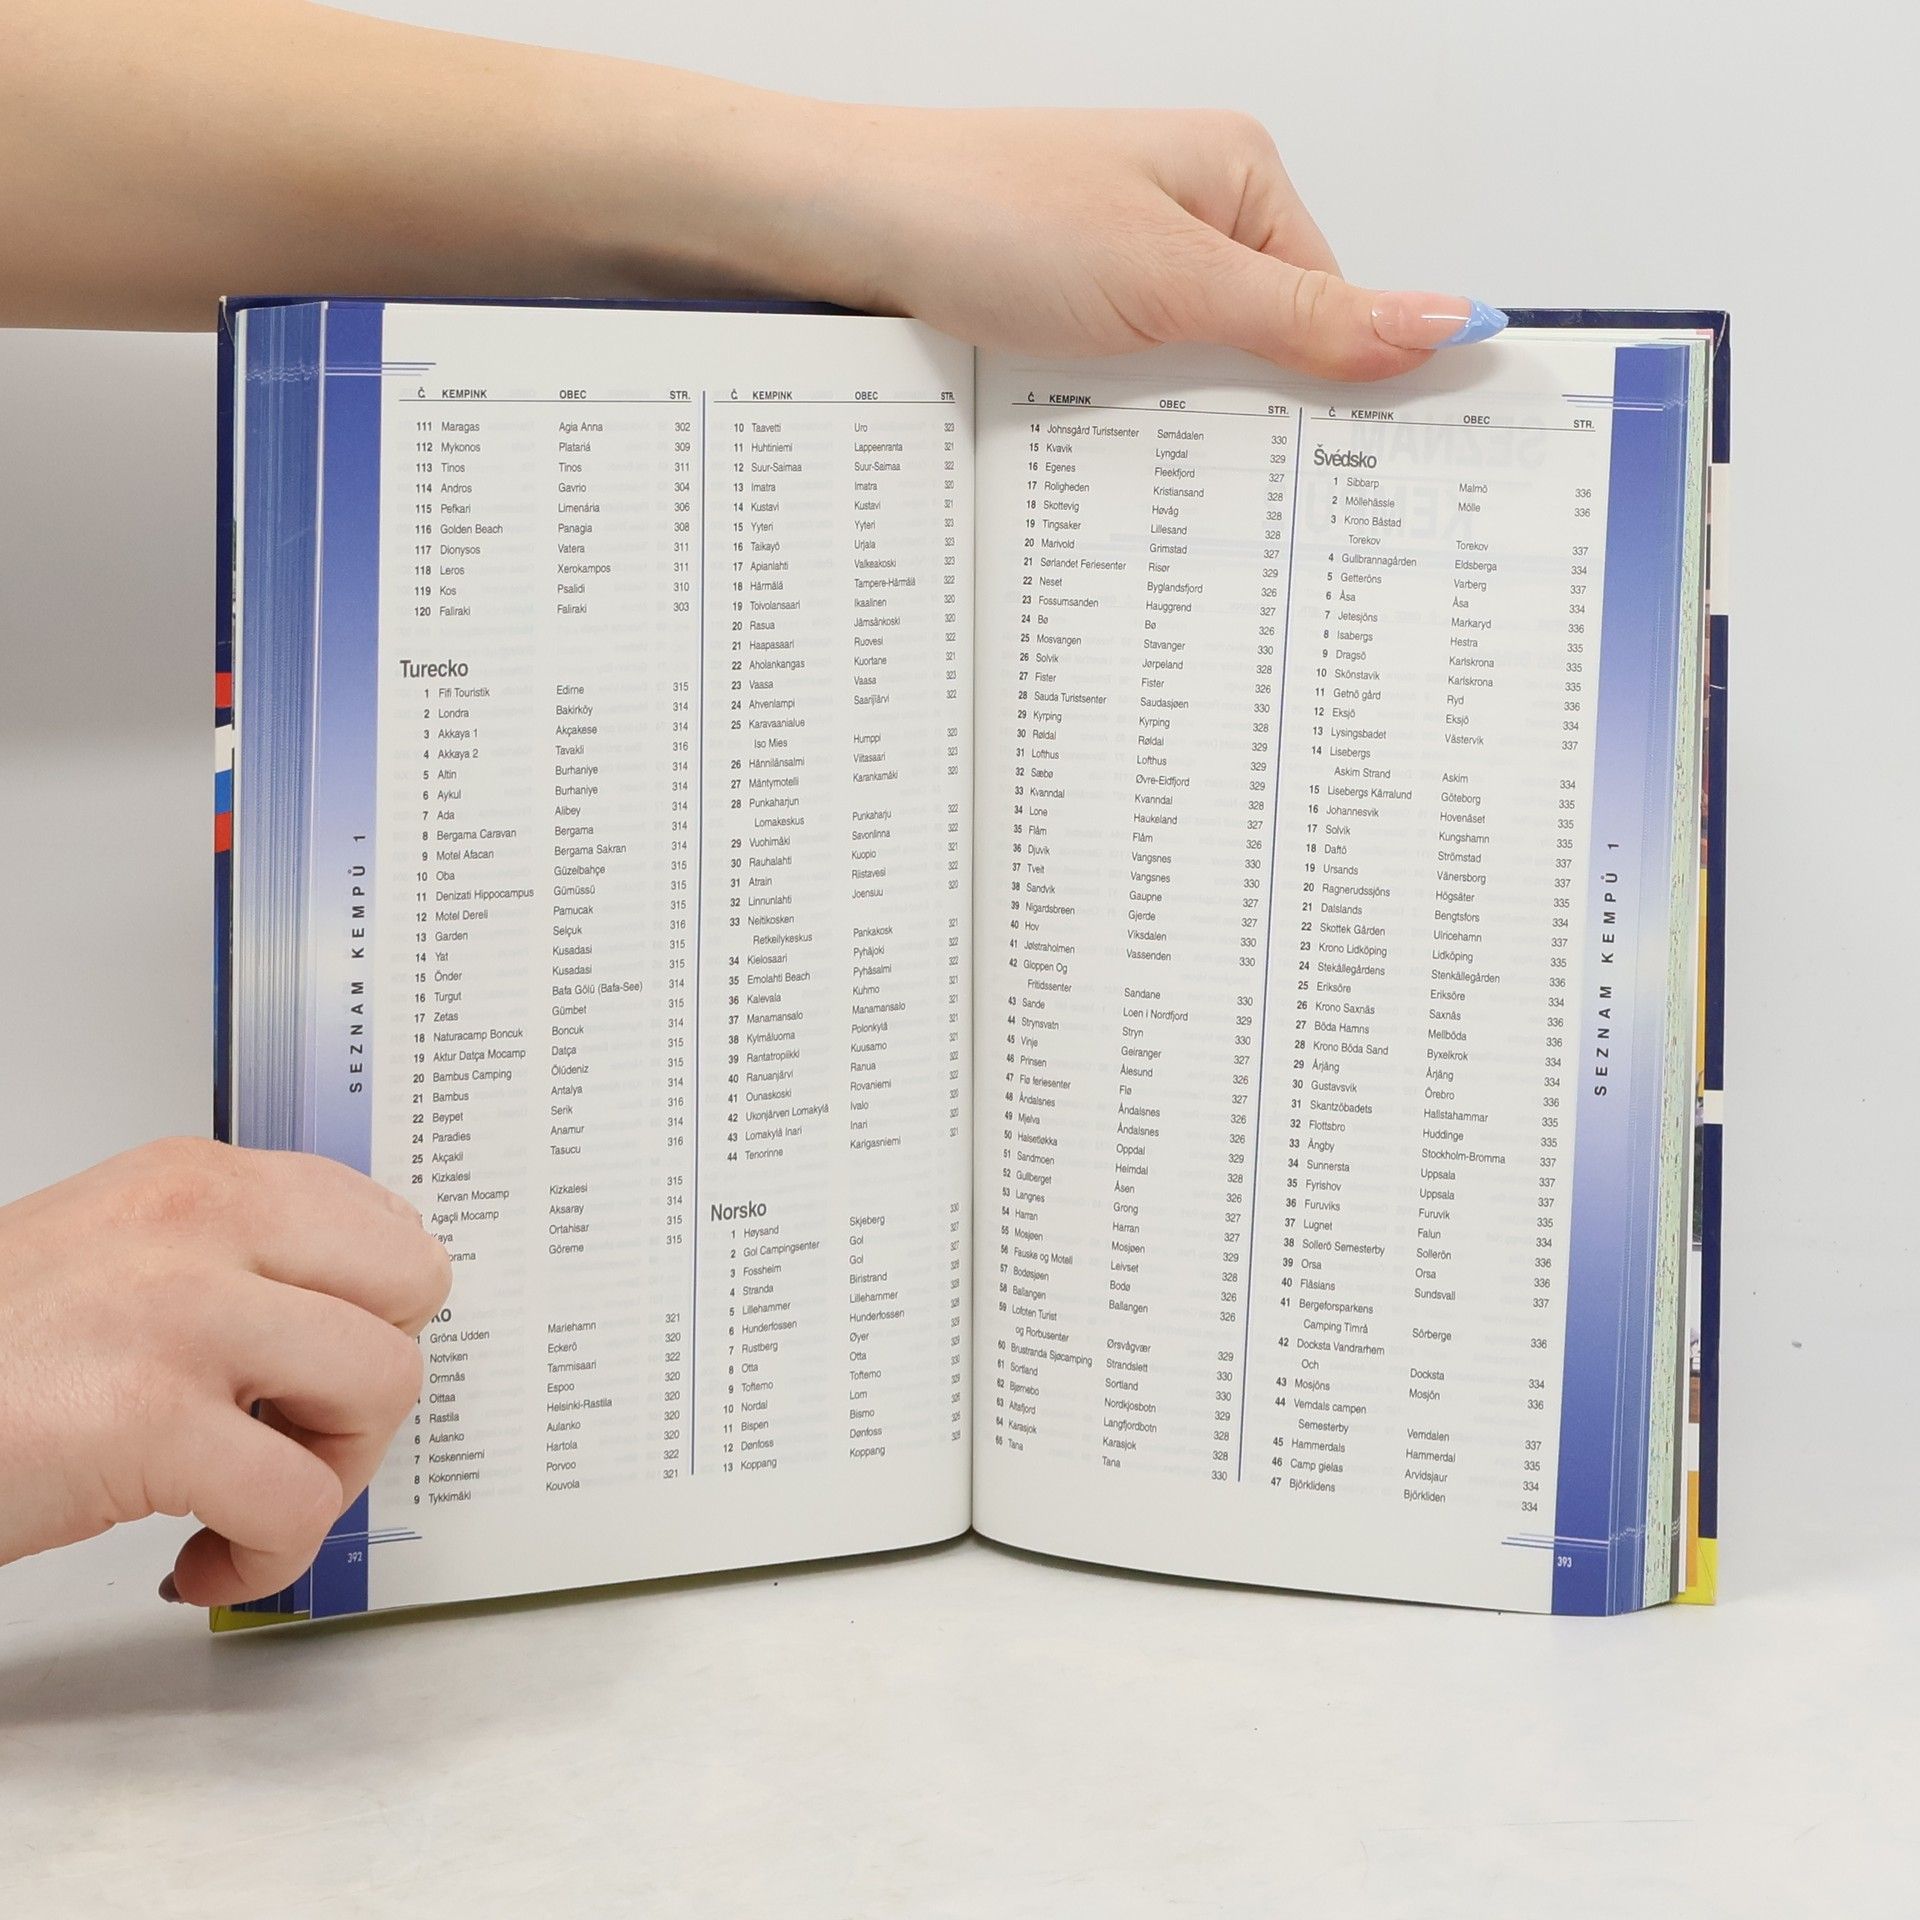 SEZNAM KEMPŮ 1
Č. KEMPINK OBEC STR.
111 Maragas Agia Anna 302
112 Mykonos Platariá 309
113 Tinos Tinos 311
114 Andros Gavrio 304
115 Pefkari Limenária 306
116 Golden Beach Panagia 308
117 Dionysos Vatera 311
118 Leros Xerokampos 311
119 Kos Psalidi 310
120 Faliraki Faliraki 303
Turecko
1 Fifi Touristik Edirne 315
2 Londra Bakirköy 314
3 Akkaya 1 Akçakese 314
4 Akkaya 2 Tavakli 316
5 Altin Burhaniye 314
6 Aykul Burhaniye 314
7 Ada Alibey 314
8 Bergama Caravan Bergama 314
9 Motel Afacan Bergama Sakran 314
10 Oba Güzelbahçe 315
11 Denizati Hippocampus Gümüssü 315
12 Motel Dereli Pamucak 315
13 Garden Selçuk 316
14 Yat Kusadasi 315
15 Önder Kusadasi 315
16 Turgut Bafa Gölü (Bafa-See) 314
17 Zetas Gümbet 315
18 Naturacamp Boncuk Boncuk 314
19 Aktur Datça Mocamp Datça 315
20 Bambus Camping Ölüdeniz 315
21 Bambus Antalya 314
22 Beypet Serik 316
24 Paradies Anamur 314
25 Akçakil Tasucu 316
26 Kizkalesi
Kervan Mocamp Kizkalesi 315
Agaçli Mocamp Aksaray 314
Kaya Ortahisar 315
orama Göreme 315
ko
1 Gröna Udden Mariehamn 321
Notviken Eckerö 320
Ormnäs Tammisaari 322
Oittaa Espoo 320
5 Rastila Helsinki-Rastila 320
6 Aulanko Aulanko 320
7 Koskenniemi Hartola 320
8 Kokonniemi Porvoo 322
9 Tykkimäki Kouvola 321
392
Č. KEMPINK OBEC STR.
10 Taavetti Uro 323
11 Huhtiniemi Lappeenranta 321
12 Suur-Saimaa Suur-Saimaa 322
13 Imatra Imatra 320
14 Kustavi Kustavi 321
15 Yyteri Yyteri 323
16 Taikayö Urjala 323
17 Apianlahti Valkeakoski 323
18 Härmälä Tampere-Härmälä 322
19 Toivolansaari Ikaalinen 320
20 Rasua Jämsänkoski 320
21 Haapasaari Ruovesi 322
22 Aholankangas Kuortane 321
23 Vaasa Vaasa 323
24 Ahvenlampi Saarijärvi 322
25 Karavaanialue
Iso Mies Humppi 320
26 Hännilänsalmi Viitasaari 323
27 Mäntymotelli Karankamäki 320
28 Punkaharjun
Lomakeskus Punkaharju 322
29 Vuohimäki Savonlinna 322
30 Rauhalahti Kuopio 321
31 Atrain Riistavesi 322
32 Linnunlahti Joensuu 320
33 Neitikosken
Retkeilykeskus Pankakosk 321
34 Kielosaari Pyhäjoki 322
35 Emolahti Beach Pyhäsalmi 322
36 Kalevala Kuhmo 321
37 Manamansalo Manamansalo 321
38 Kylmäluoma Polonkylä 321
39 Rantatropiikki Kuusamo 321
40 Ranuanjärvi Ranua 322
41 Ounaskoski Rovaniemi 322
42 Ukonjärven Lomakylä Ivalo 320
43 Lomakylä Inari Inari 320
44 Tenorinne Karigasniemi 321
Norsko
1 Høysand Skjeberg 330
2 Gol Campingsenter Gol 327
3 Fossheim Gol 327
4 Stranda Biristrand 326
5 Lillehammer Lillehammer 328
6 Hunderfossen Hunderfossen 328
7 Rustberg Øyer 329
8 Otta Otta 329
9 Toftemo Toftemo 330
10 Nordal Lom 329
11 Bispen Bismo 326
12 Dønfoss Dønfoss 326
13 Koppang Koppang 328
Č. KEMPINK OBEC STR.
14 Johnsgård Turistsenter Sømådalen 330
15 Kvavik Lyngdal 329
16 Egenes Fleekfjord 327
17 Roligheden Kristiansand 328
18 Skottevig Høvåg 328
19 Tingsaker Lillesand 328
20 Marivold Grimstad 327
21 Sørlandet Feriesenter Risør 329
22 Neset Byglandsfjord 326
23 Fossumsanden Hauggrend 327
24 Bø Bø 326
25 Mosvangen Stavanger 330
26 Solvik Jørpeland 328
27 Fister Fister 326
28 Sauda Turistsenter Saudasjøen 330
29 Kyrping Kyrping 328
30 Røldal Røldal 329
31 Lofthus Lofthus 329
32 Sæbø Øvre-Eidfjord 329
33 Kvanndal Kvanndal 328
34 Lone Haukeland 327
35 Flåm Flåm 326
36 Djuvik Vangsnes 330
37 Tveit Vangsnes 330
38 Sandvik Gaupne 327
39 Nigardsbreen Gjerde 327
40 Hov Viksdalen 330
41 Jølstraholmen Vassenden 330
42 Gloppen Og
Fritidssenter Sandane 330
43 Sande Loen i Nordfjord 329
44 Strynsvatn Stryn 330
45 Vinje Geiranger 327
46 Prinsen Ålesund 326
47 Flø feriesenter Flø 327
48 Åndalsnes Åndalsnes 326
49 Mjelva Åndalsnes 326
50 Halsetløkka Oppdal 329
51 Sandmoen Heimdal 328
52 Gullberget Åsen 326
53 Langnes Grong 327
54 Harran Harran 327
55 Mosjøen Mosjøen 329
56 Fauske og Motell Leivset 328
57 Bodøsjøen Bodø 326
58 Ballangen Ballangen 326
59 Lofoten Turist
og Rorbusenter Ørsvågvær 329
60 Brustranda Sjøcamping Strandslett 330
61 Sortland Sortland 330
62 Bjørnebo Nordkjosbotn 329
63 Altafjord Langfjordbotn 328
64 Karasjok Karasjok 328
65 Tana Tana 330
Č. KEMPINK OBEC STR.
Švédsko
1 Sibbarp Malmö 336
2 Möllehässle Mölle 336
3 Krono Båstad
Torekov Torekov 337
4 Gullbrannagården Eldsberga 334
5 Getteröns Varberg 337
6 Åsa Åsa 334
7 Jetesjöns Markaryd 336
8 Isabergs Hestra 335
9 Dragsö Karlskrona 335
10 Skönstavik Karlskrona 335
11 Getnö gård Ryd 336
12 Eksjö Eksjö 334
13 Lysingsbadet Västervik 337
14 Lisebergs
Askim Strand Askim 334
15 Lisebergs Kärralund Göteborg 335
16 Johannesvik Hovenäset 335
17 Solvik Kungshamn 335
18 Daftö Strömstad 337
19 Ursands Vänersborg 337
20 Ragnerudssjöns Högsäter 335
21 Dalslands Bengtsfors 334
22 Skottek Gården Ulricehamn 337
23 Krono Lidköping Lidköping 335
24 Stekällegårdens Stenkällegården 336
25 Eriksöre Eriksöre 334
26 Krono Saxnäs Saxnäs 336
27 Böda Hamns Mellböda 336
28 Krono Böda Sand Byxelkrok 334
29 Årjäng Årjäng 334
30 Gustavsvik Örebro 336
31 Skantzöbadets Hallstahammar 335
32 Flottsbro Huddinge 335
33 Ängby Stockholm-Bromma 337
34 Sunnersta Uppsala 337
35 Fyrishov Uppsala 337
36 Furuviks Furuvik 335
37 Lugnet Falun 334
38 Sollerö Semesterby Sollerön 336
39 Orsa Orsa 336
40 Fläsians Sundsvall 337
41 Bergeforsparkens
Camping Timrå Sörberge 336
42 Docksta Vandrarhem
Och Docksta 334
43 Mosjöns Mosjön 336
44 Vemdals campen
Semesterby Vemdalen 337
45 Hammerdals Hammerdal 335
46 Camp gielas Arvidsjaur 334
47 Björklidens Björkliden 334
SEZNAM KEMPŮ 1
393